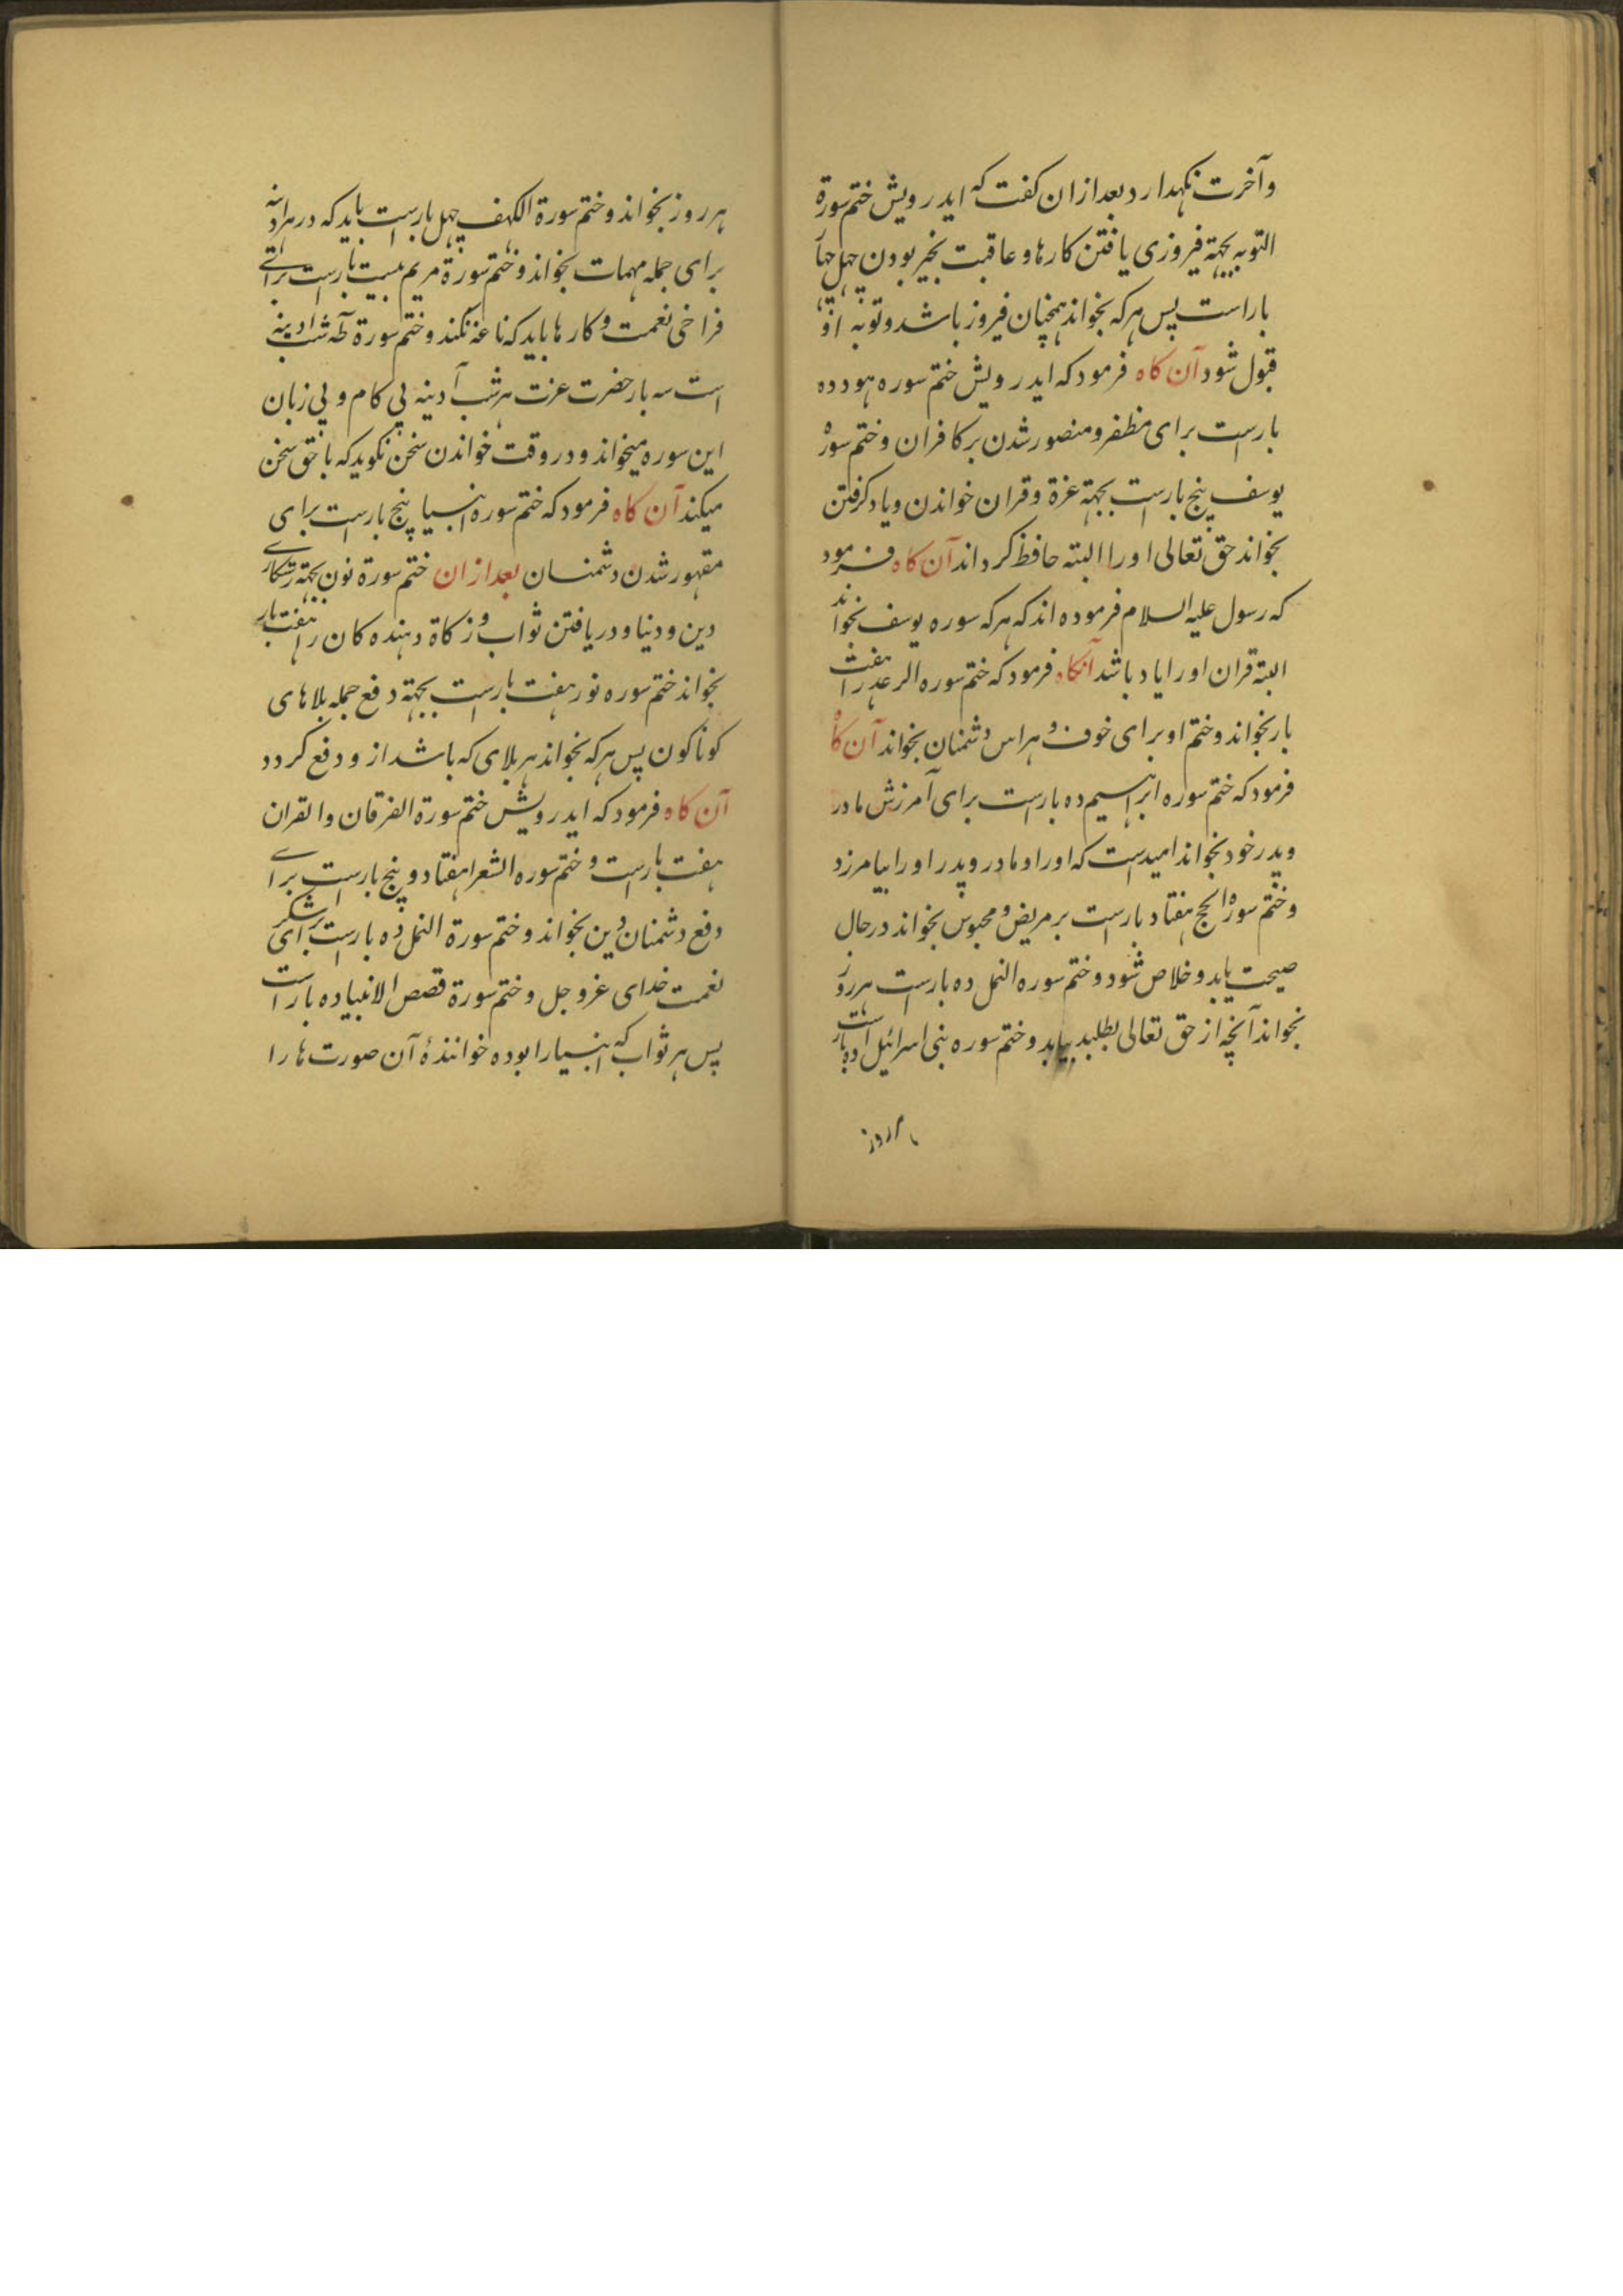 وآخرت نکهدارد بعد ازان کفت که ایدرویش ختم سورة
التوبه بجهة فیروزی یافتن کارها و عاقبت بخیر بودن چهل
باراست پس هرکه بخواند همچنان فیروز باشد و توبه او
قبول شود آن کاه فرمود که ایدرویش ختم سوره هود ده
بارست برای مظفر و منصور شدن بر کافران و ختم سورة
یوسف پنج بارست بجهة عزة و قران خواندن و یاد کرفتن
بخواند حق تعالی اورا البته حافظ کرداند آن کاه فرمود
که رسول علیه السلام فرموده اند که هرکه سوره یوسف بخواند
البته قران اورا یاد باشد آنکاه فرمود که ختم سوره الرعد را هفت
بار بخواند و ختم او برای خوف و هراس دشمنان بخواند آن کاه
فرمود که ختم سوره ابراهیم ده بارست برای آمرزش مادر
و پدر خود بخواند امیدست که اورا و مادر و پدر اورا بیامرزد
و ختم سورة الحج هفتاد بارست بر مریض و محبوس بخواند در حال
صیحت یابد و خلاص شود و ختم سوره النمل ده بارست هر روز
بخواند آنچه از حق تعالی بطلبد بیابد و ختم سوره بنی اسرائیل ده بار است
هر روز
هر روز بخواند و ختم سورة الکهف چهل بارست باید که در هر ادینه
برای جمله مهمات بخواند و ختم سورة مریم بیست بارست برای
فراخی نعمت و کارها باید که ناغه نکند و ختم سورة طه شب ادینه
است سه بار حضرت عزت هر شب آدینه بی کام و بی زبان
این سوره میخواند و در وقت خواندن سخن نکوید که با حق سخن
میکند آن کاه فرمود که ختم سوره انبیا پنج بارست برای
مقهور شدن دشمنان بعد ازان ختم سورة نون بجهة رستکاری
دین و دنیا و دریافتن ثواب و زکاة دهنده کان را هفت بار
بخواند ختم سوره نور هفت بارست بجهة دفع جمله بلاهای
کوناکون پس هرکه بخواند هر بلای که باشد ازو دفع کردد
آن کاه فرمود که ایدرویش ختم سورة الفرقان والقران
هفت بارست و ختم سوره الشعرا هفتاد و پنج بارست برای
دفع دشمنان دین بخواند و ختم سورة النمل ده بارست برای شکر
نعمت خدای عزوجل و ختم سورة قصص الانبیا ده بار است
پس هر ثواب که انبیا را بوده خوانندهٔ آن صورت ها را